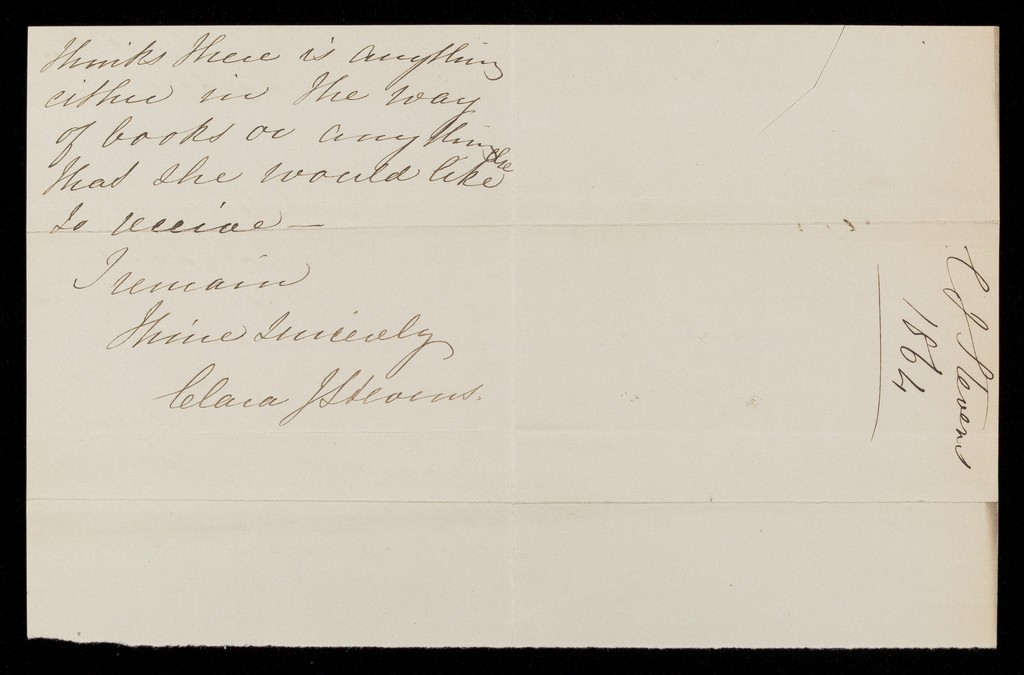 thinks there is anything
either in the way
of books or anything else
that she would like
to receive —
I remain
Thine Sincerely
Clara J Stevens.
C J Stevens
1864